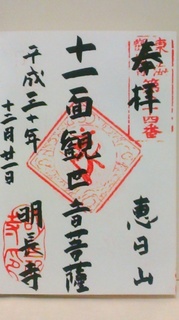 奉拝
恵日山
十一面観世音菩薩
平成三十年
十二月廿一日
明長寺